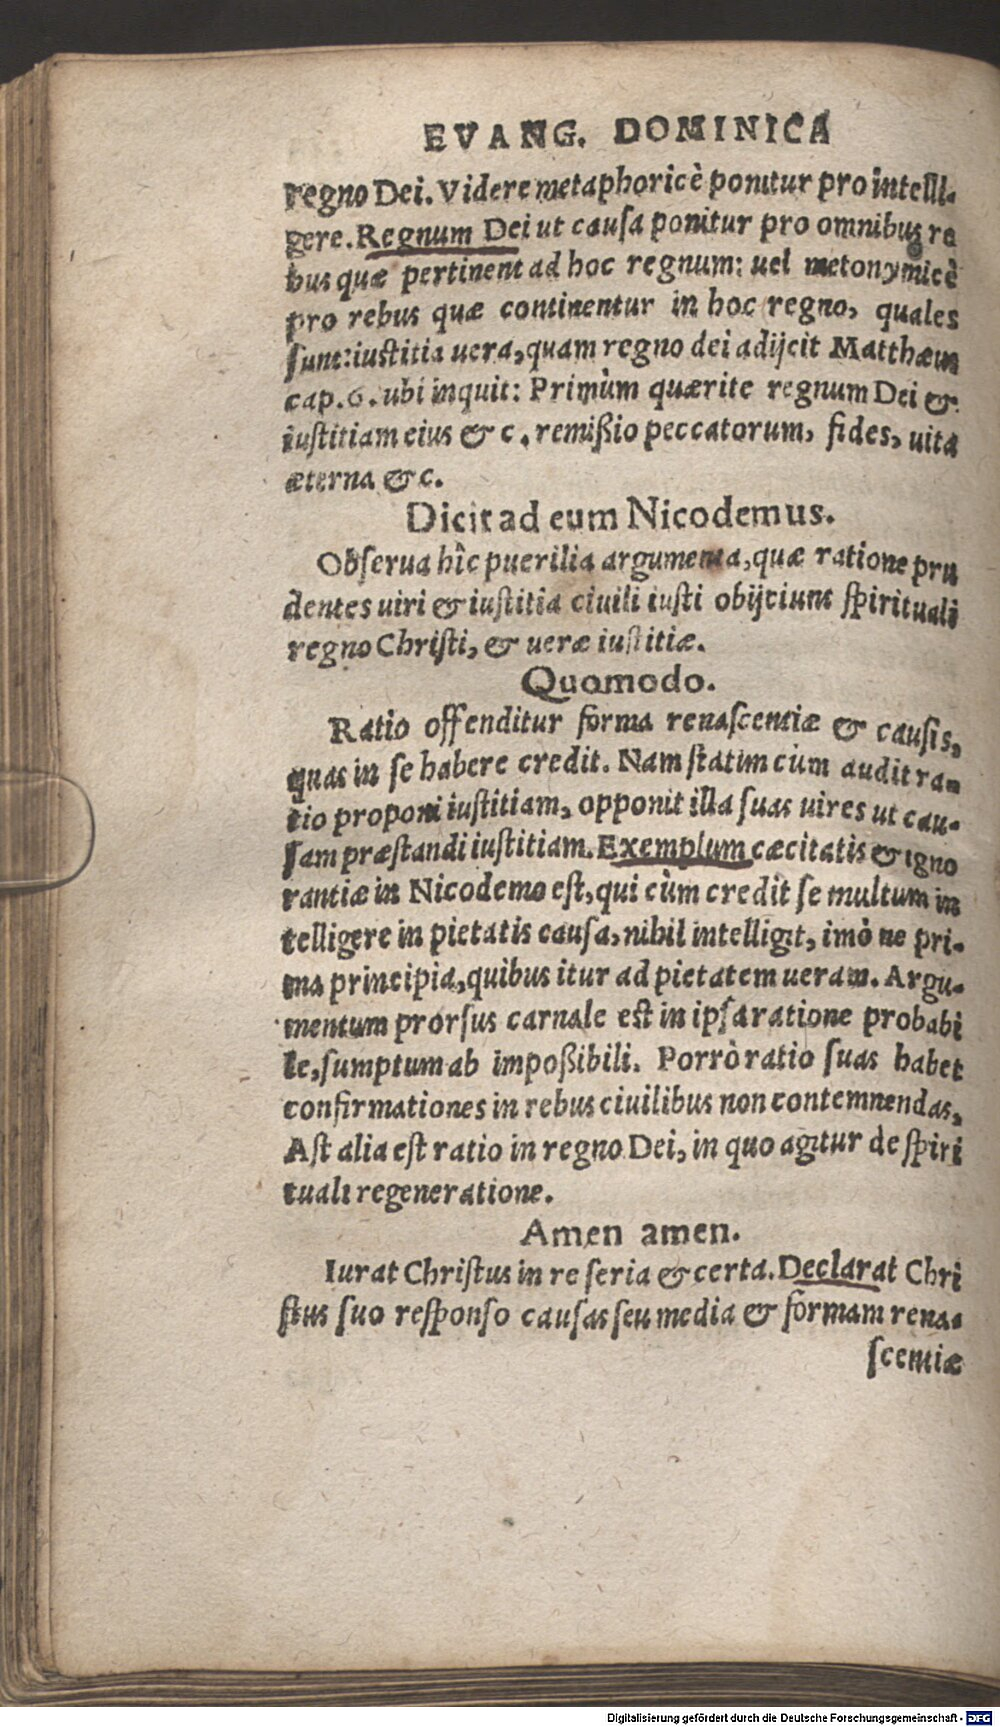 EVANG. DOMINICA
regno Dei. Videre metaphoricè ponitur pro intelli-
gere. Regnum Dei ut causa ponitur pro omnibus re
bus quæ pertinent ad hoc regnum: uel metonymicè
pro rebus quæ continentur in hoc regno, quales
sunt: iustitia uera, quam regno dei adijcit Matthæus
cap. 6. ubi inquit: Primùm quærite regnum Dei &
iustitiam eius & c. remißio peccatorum, fides, uita
æterna & c.
Dicit ad eum Nicodemus.
Obserua hîc puerilia argumenta, quæ ratione pru
dentes uiri & iustitia ciuili iusti obijciunt spirituali
regno Christi, & ueræ iustitiæ.
Quomodo.
Ratio offenditur forma renascentiæ & causis,
quas in se habere credit. Nam statim cùm audit ra-
tio proponi iustitiam, opponit illa suas uires ut cau-
sam præstandi iustitiam. Exemplum cæcitatis & igno
rantiæ in Nicodemo est, qui cùm credit se multum in
telligere in pietatis causa, nihil intelligit, imò ne pri-
ma principia, quibus itur ad pietatem ueram. Argu-
mentum prorsus carnale est in ipsa ratione probabi
le, sumptum ab impoßibili. Porrò ratio suas habet
confirmationes in rebus ciuilibus non contemnendas,
Ast alia est ratio in regno Dei, in quo agitur de spiri
tuali regeneratione.
Amen amen.
Iurat Christus in re seria & certa. Declarat Chri
stus suo responso causas seu media & formam rena-
scentiæ
Digitalisierung gefördert durch die Deutsche Forschungsgemeinschaft - DFG